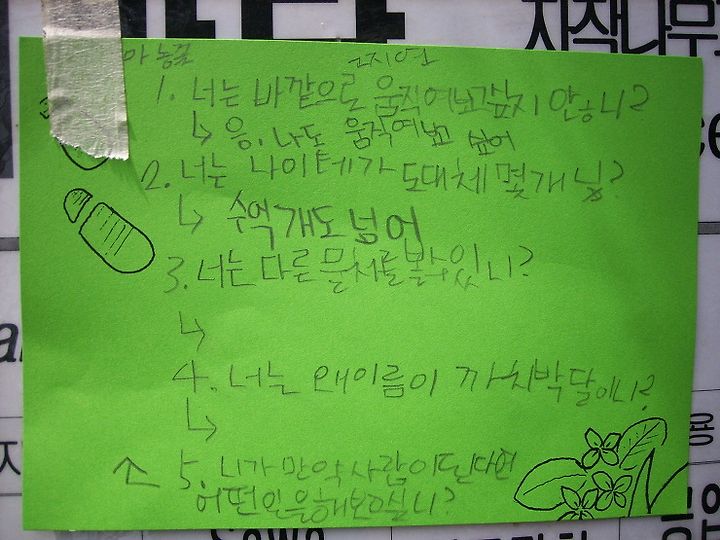 자작나무
1. 너는 바깥으로 움직여보고싶지
↳ 응. 나도 움직여보고 싶어
2. 너는 나이테가 도대체 몇개
↳ 수억개도 넘어
3. 너는 다른 물체를 볼수있니?
↳
4. 너는 왜이름이 까치박달이니?
↳
↑ 5. 니가 만약사람이된다면
어떤일을해보고싶니?